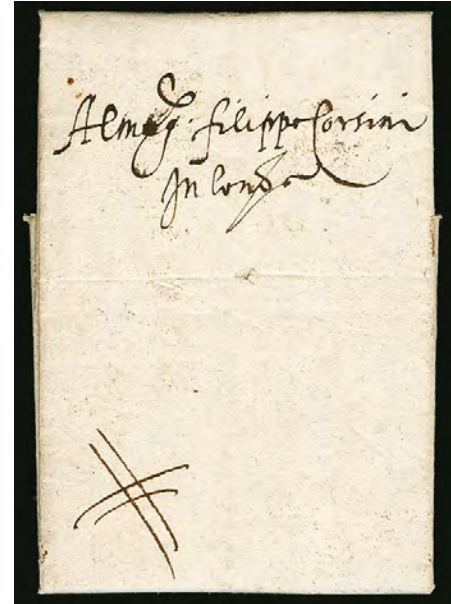 Al mag.co filippo Corsini
In londra